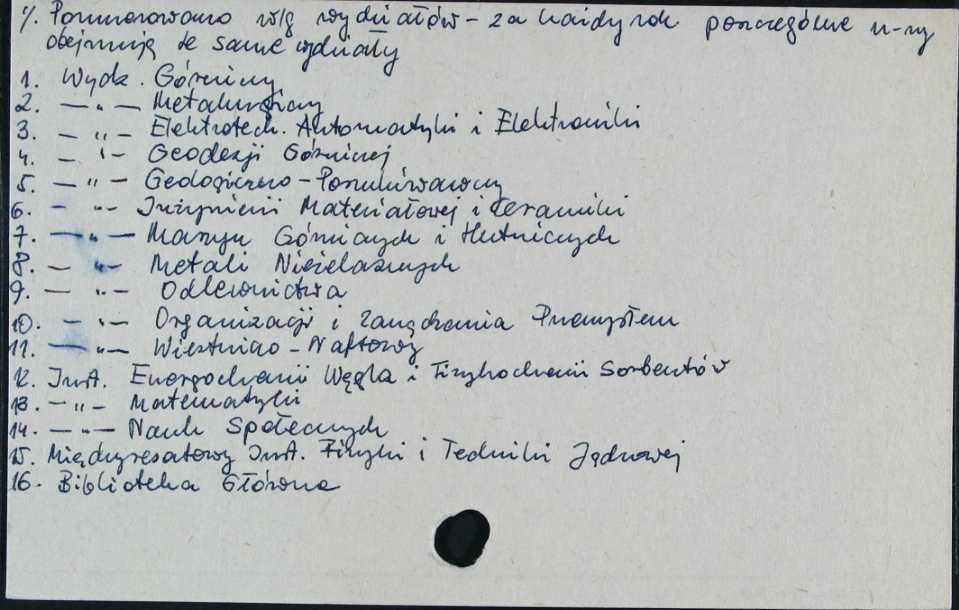 1/. Ponumerowano w/g wydziałów - za każdy rok poszczególne n-ry
obejmują te same wydziały
1. Wydz. Górniczy
2. — " — Metalurgiczny
3. — " — Elektrotech. Automatyki i Elektroniki
4. — " — Geodezji Górniczej
5. — " — Geologiczno-Poszukiwawczy
6. — " — Inżynierii Materiałowej i Ceramiki
7. — " — Maszyn Górniczych i Hutniczych
8. — " — Metali Nieżelaznych
9. — " — Odlewnictwa
10. — " — Organizacji i Zarządzania Przemysłem
11. — " — Wiertniczo-Naftowy
12. Inst. Energochemii Węgla i Fizykochemii Sorbentów
13. — " — Matematyki
14. — " — Nauk Społecznych
15. Międzyresortowy Inst. Fizyki i Techniki Jądrowej
16. Biblioteka Główna